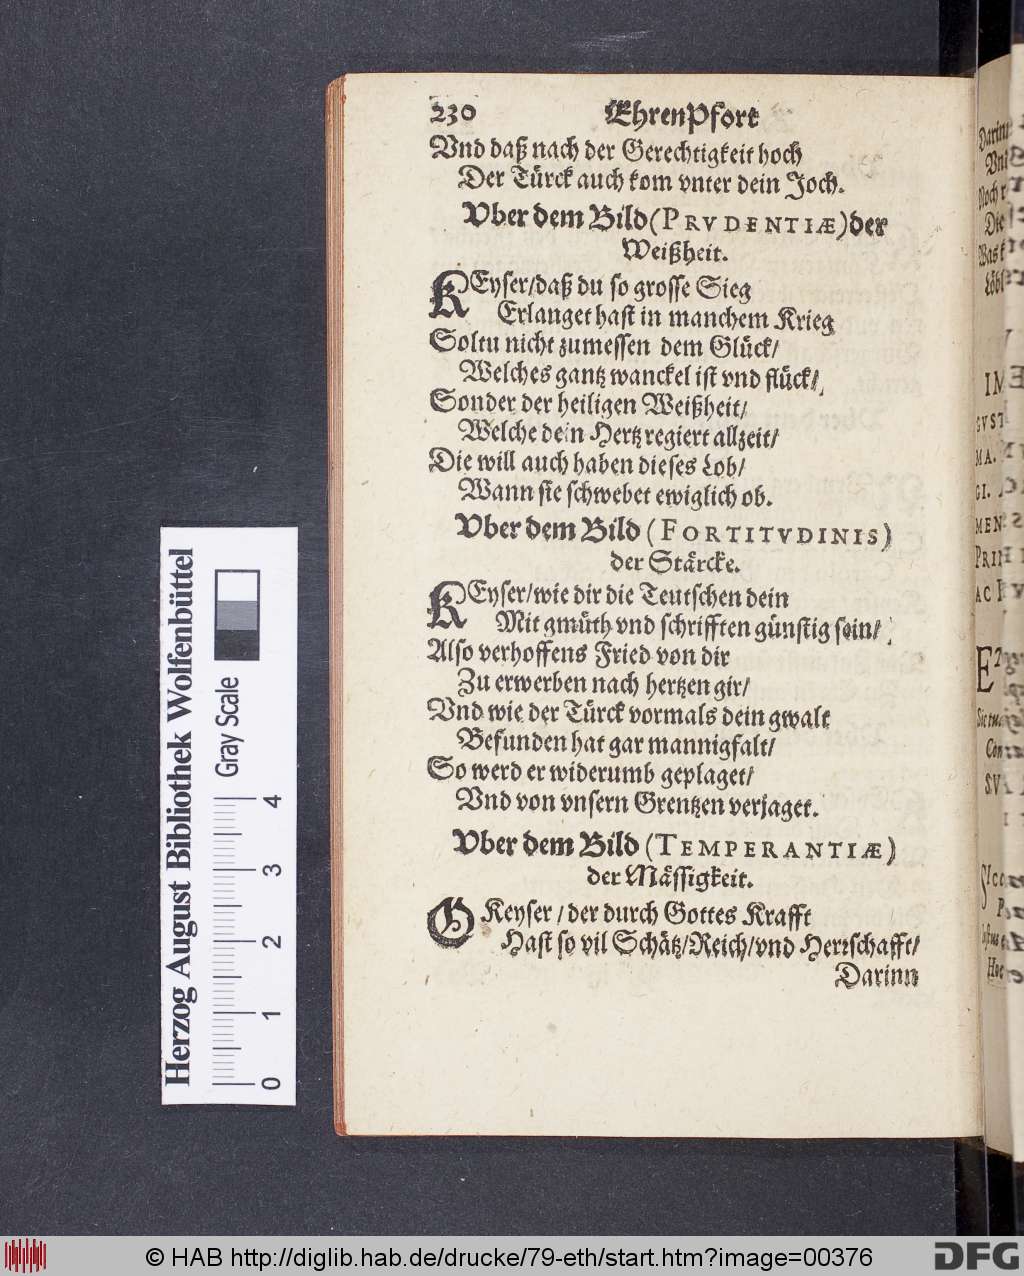 230 EhrenPfort
Vnd daß nach der Gerechtigkeit hoch
Der Türck auch kom vnter dein Joch.
Vber dem Bild (PRVDENTIÆ) der
Weißheit.
KEyser/daß du so grosse Sieg
Erlanget hast in manchem Krieg
Soltu nicht zumessen dem Glück/
Welches gantz wanckel ist vnd flück/
Sonder der heiligen Weißheit/
Welche dein Hertz regiert allzeit/
Die will auch haben dieses Lob/
Wann sie schwebet ewiglich ob.
Vber dem Bild (FORTITVDINIS)
der Stärcke.
KEyser/wie dir die Teutschen dein
Mit gmüth vnd schrifften günstig sein/
Also verhoffens Fried von dir
Zu erwerben nach hertzen gir/
Vnd wie der Türck vormals dein gwalt
Befunden hat gar mannigfalt/
So werd er widerumb geplaget/
Vnd von vnsern Grentzen verjaget.
Vber dem Bild (TEMPERANTIÆ)
der Mässigkeit.
O Keyser / der durch Gottes Krafft
Hast so vil Schätz/Reich/vnd Herrschafft/
Darinn
Herzog August Bibliothek Wolfenbüttel
Gray Scale
0 1 2 3 4
© HAB http://diglib.hab.de/drucke/79-eth/start.htm?image=00376
DFG